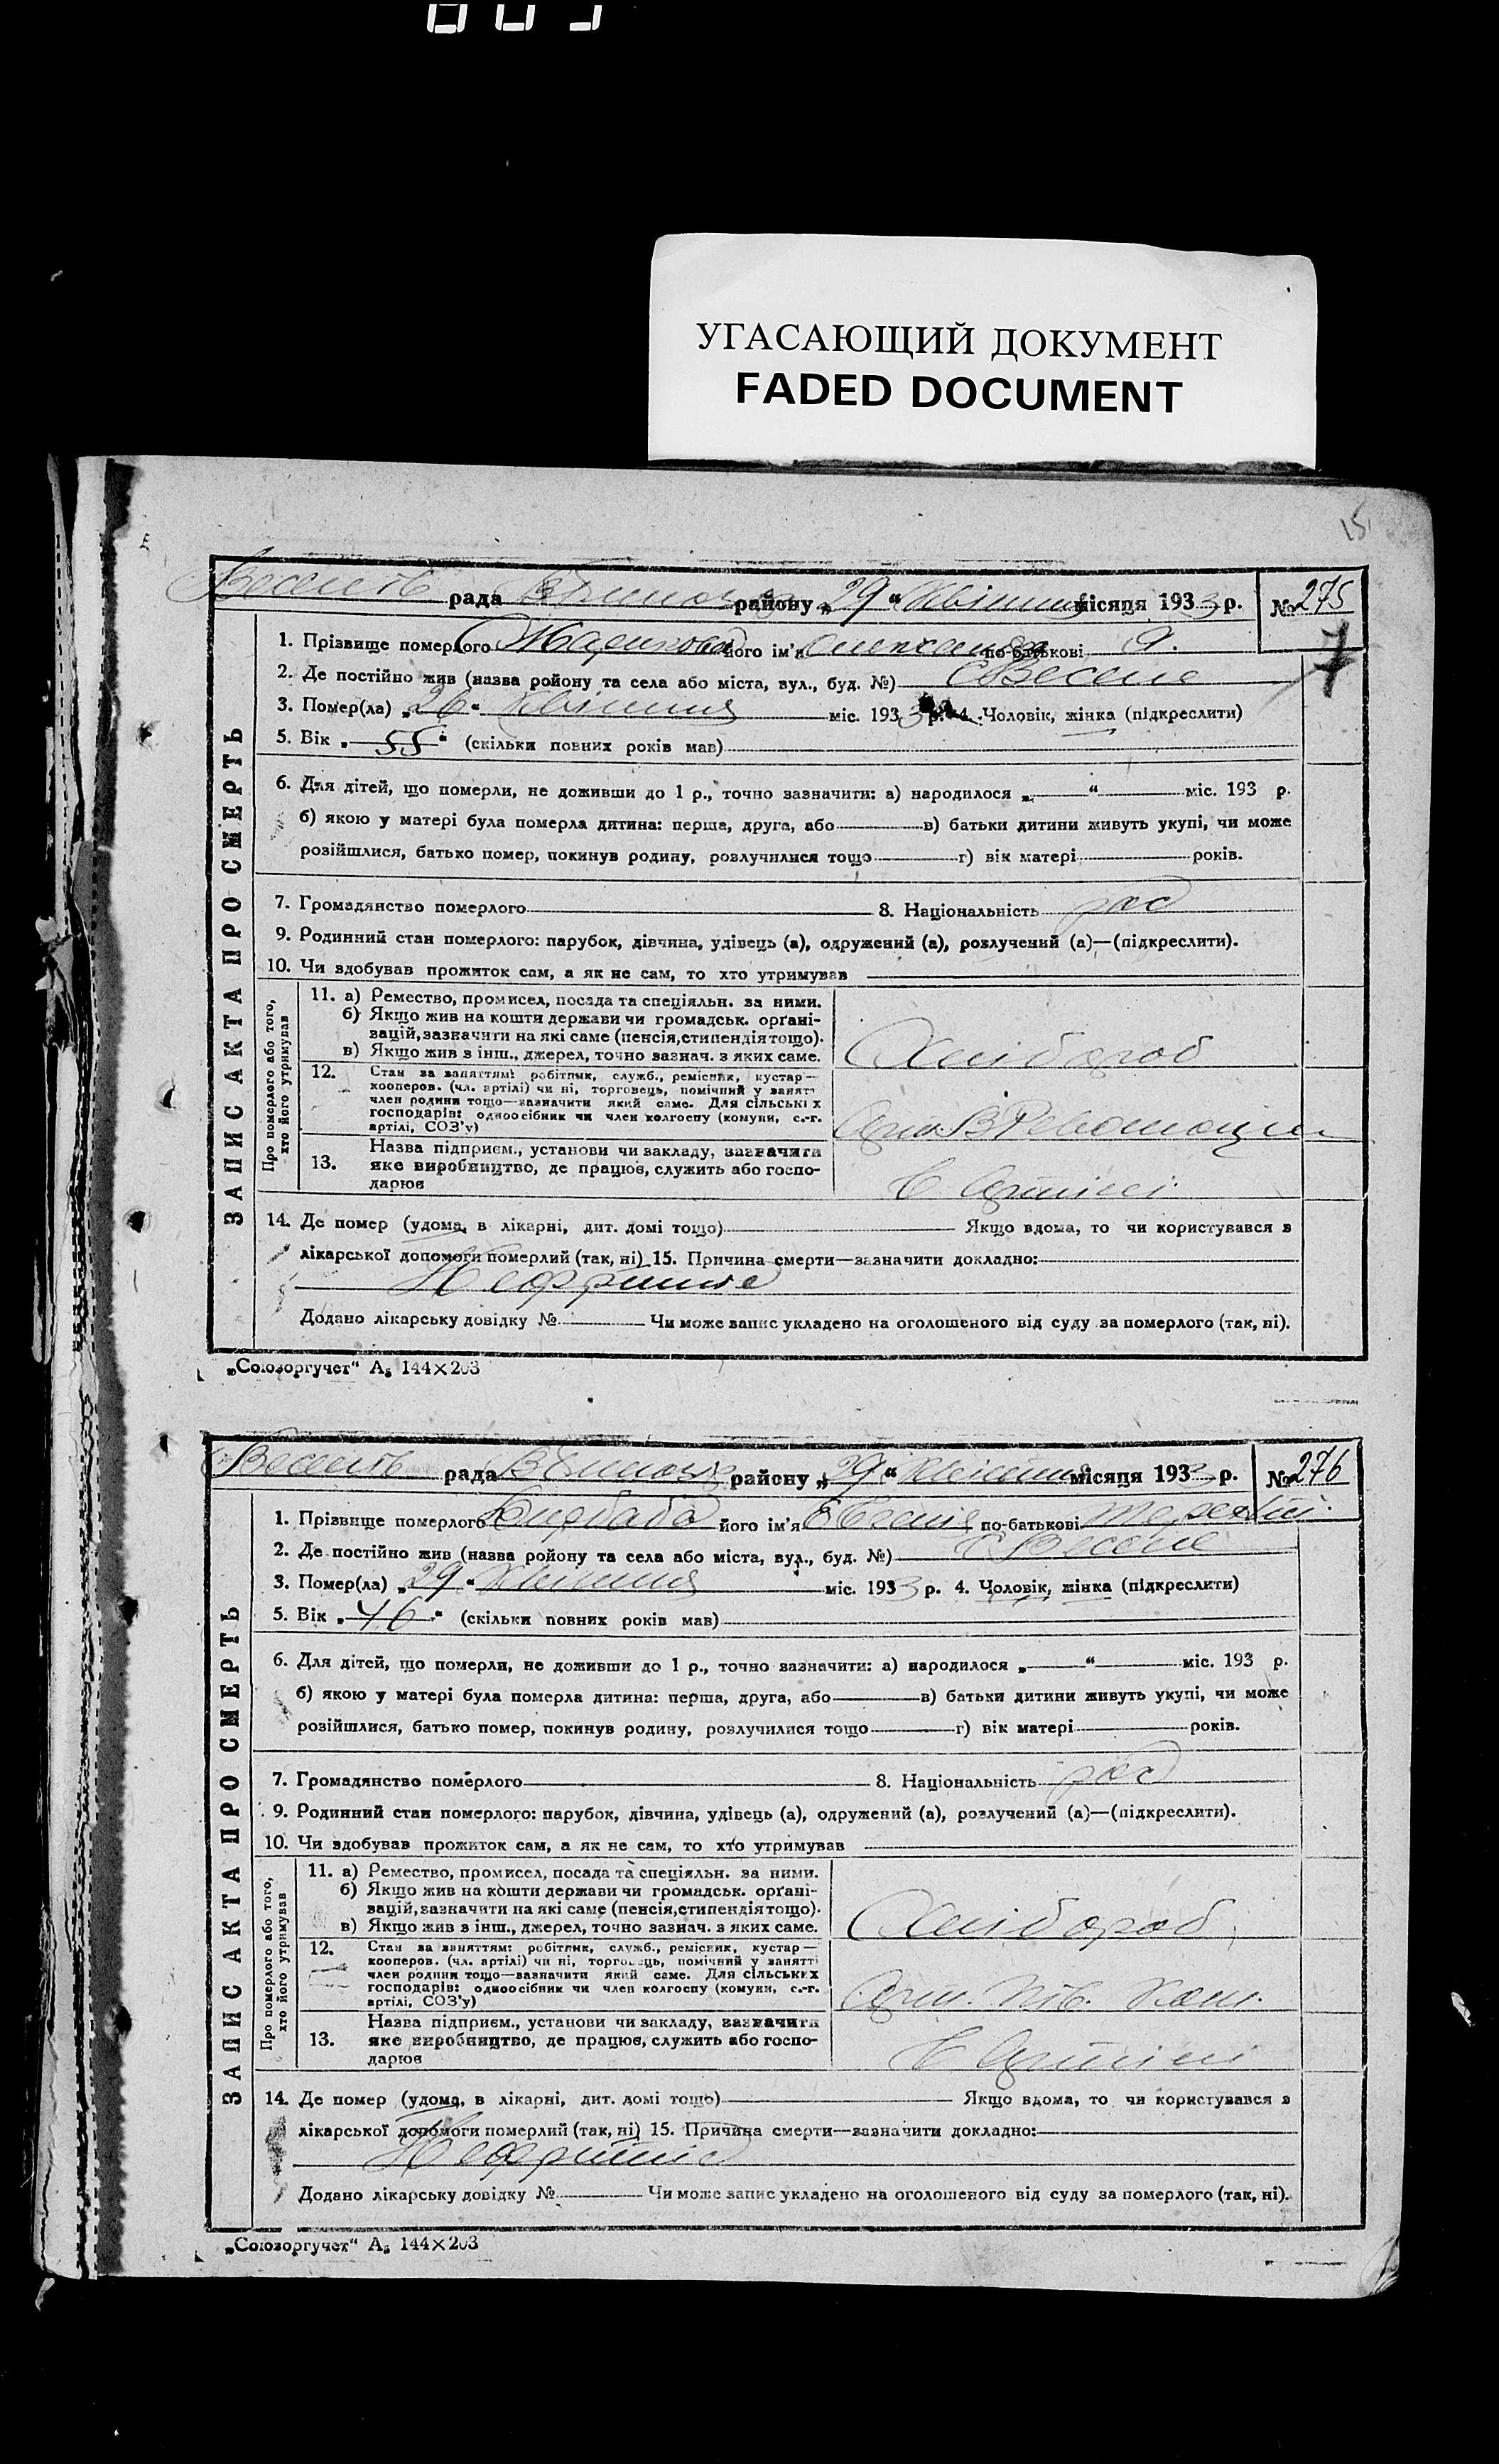 УГАСАЮЩИЙ ДОКУМЕНТ
FADED DOCUMENT
15
рада району „29“ Квітня місяця 1933 р. № 275
1. Прізвище померлого його ім'я по-батькові
2. Де постійно жив (назва району та села або міста, вул., буд. №) с Веселе
3. Помер(ла) „26“ Квітня міс. 1933 р. 4. Чоловік, жінка (підкреслити)
5. Вік „55“ (скільки повних років мав)
6. Для дітей, що померли, не доживши до 1 р., точно зазначити: а) народилося „ “ міс. 193 р.
б) якою у матері була померла дитина: перша, друга, або в) батьки дитини живуть укупі, чи може
розійшлися, батько помер, покинув родину, розлучилися тощо г) вік матері років.
7. Громадянство померлого 8. Національність рос
9. Родинний стан померлого: парубок, дівчина, удівець (а), одружений (а), розлучений (а)—(підкреслити).
10. Чи здобував прожиток сам, а як не сам, то хто утримував
ЗАПИС АКТА ПРО СМЕРТЬ
Про померлого або того, хто його утримував
11. а) Ремество, промисел, посада та спеціяльн. за ними.
б) Якщо жив на кошти держави чи громадськ. органі-
зацій, зазначити на які саме (пенсія, стипендія тощо).
в) Якщо жив з інш., джерел, точно зазнач. з яких саме.
Хлібороб
12. Стан за заняттям: робітник, служб., ремісник, кустар—
кооперов. (чл. артілі) чи ні, торговець, помічний у занятті
член родини тощо—зазначити який саме. Для сільських
господарів: одноосібник чи член колгоспу (комуни, с.-г.
артілі, СОЗ'у)
13. Назва підприєм., установи чи закладу, зазначити
яке виробництво, де працює, служить або госпо-
дарює
В Артілі
14. Де помер (удома, в лікарні, дит. домі тощо) Якщо вдома, то чи користувався з
лікарської допомоги померлий (так, ні) 15. Причина смерти—зазначити докладно:
Нефрит
Додано лікарську довідку № Чи може запис укладено на оголошеного від суду за померлого (так, ні).
„Союзоргучет“ А5 144×203
рада району „29“ Квітня місяця 1933 р. № 276
1. Прізвище померлого його ім'я по-батькові
2. Де постійно жив (назва району та села або міста, вул., буд. №) с Веселе
3. Помер(ла) „29“ Квітня міс. 1933 р. 4. Чоловік, жінка (підкреслити)
5. Вік „46“ (скільки повних років мав)
6. Для дітей, що померли, не доживши до 1 р., точно зазначити: а) народилося „ “ міс. 193 р.
б) якою у матері була померла дитина: перша, друга, або в) батьки дитини живуть укупі, чи може
розійшлися, батько помер, покинув родину, розлучилися тощо г) вік матері років.
7. Громадянство померлого 8. Національність рос
9. Родинний стан померлого: парубок, дівчина, удівець (а), одружений (а), розлучений (а)—(підкреслити).
10. Чи здобував прожиток сам, а як не сам, то хто утримував
ЗАПИС АКТА ПРО СМЕРТЬ
Про померлого або того, хто його утримував
11. а) Ремество, промисел, посада та спеціяльн. за ними.
б) Якщо жив на кошти держави чи громадськ. органі-
зацій, зазначити на які саме (пенсія, стипендія тощо).
в) Якщо жив з інш., джерел, точно зазнач. з яких саме.
Хлібороб
12. Стан за заняттям: робітник, служб., ремісник, кустар—
кооперов. (чл. артілі) чи ні, торговець, помічний у занятті
член родини тощо—зазначити який саме. Для сільських
господарів: одноосібник чи член колгоспу (комуни, с.-г.
артілі, СОЗ'у)
13. Назва підприєм., установи чи закладу, зазначити
яке виробництво, де працює, служить або госпо-
дарює
В Артілі
14. Де помер (удома, в лікарні, дит. домі тощо) Якщо вдома, то чи користувався з
лікарської допомоги померлий (так, ні) 15. Причина смерти—зазначити докладно:
Додано лікарську довідку № Чи може запис укладено на оголошеного від суду за померлого (так, ні).
„Союзоргучет“ А5 144×203